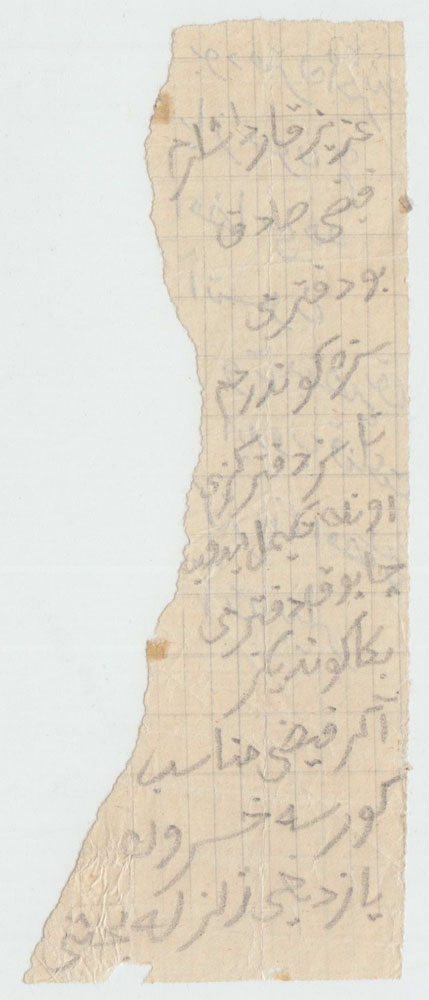 عزیز قارداشلارم
فیضی صادق
بو دفتری
سزه گوندردم
تا سز دفترگزی
اونده تکمیل ایدوب
چابوق دفتری
بکا گوندریگز
اگر فیضی مناسب
گورسه خسروه
یازدیغی زلزله